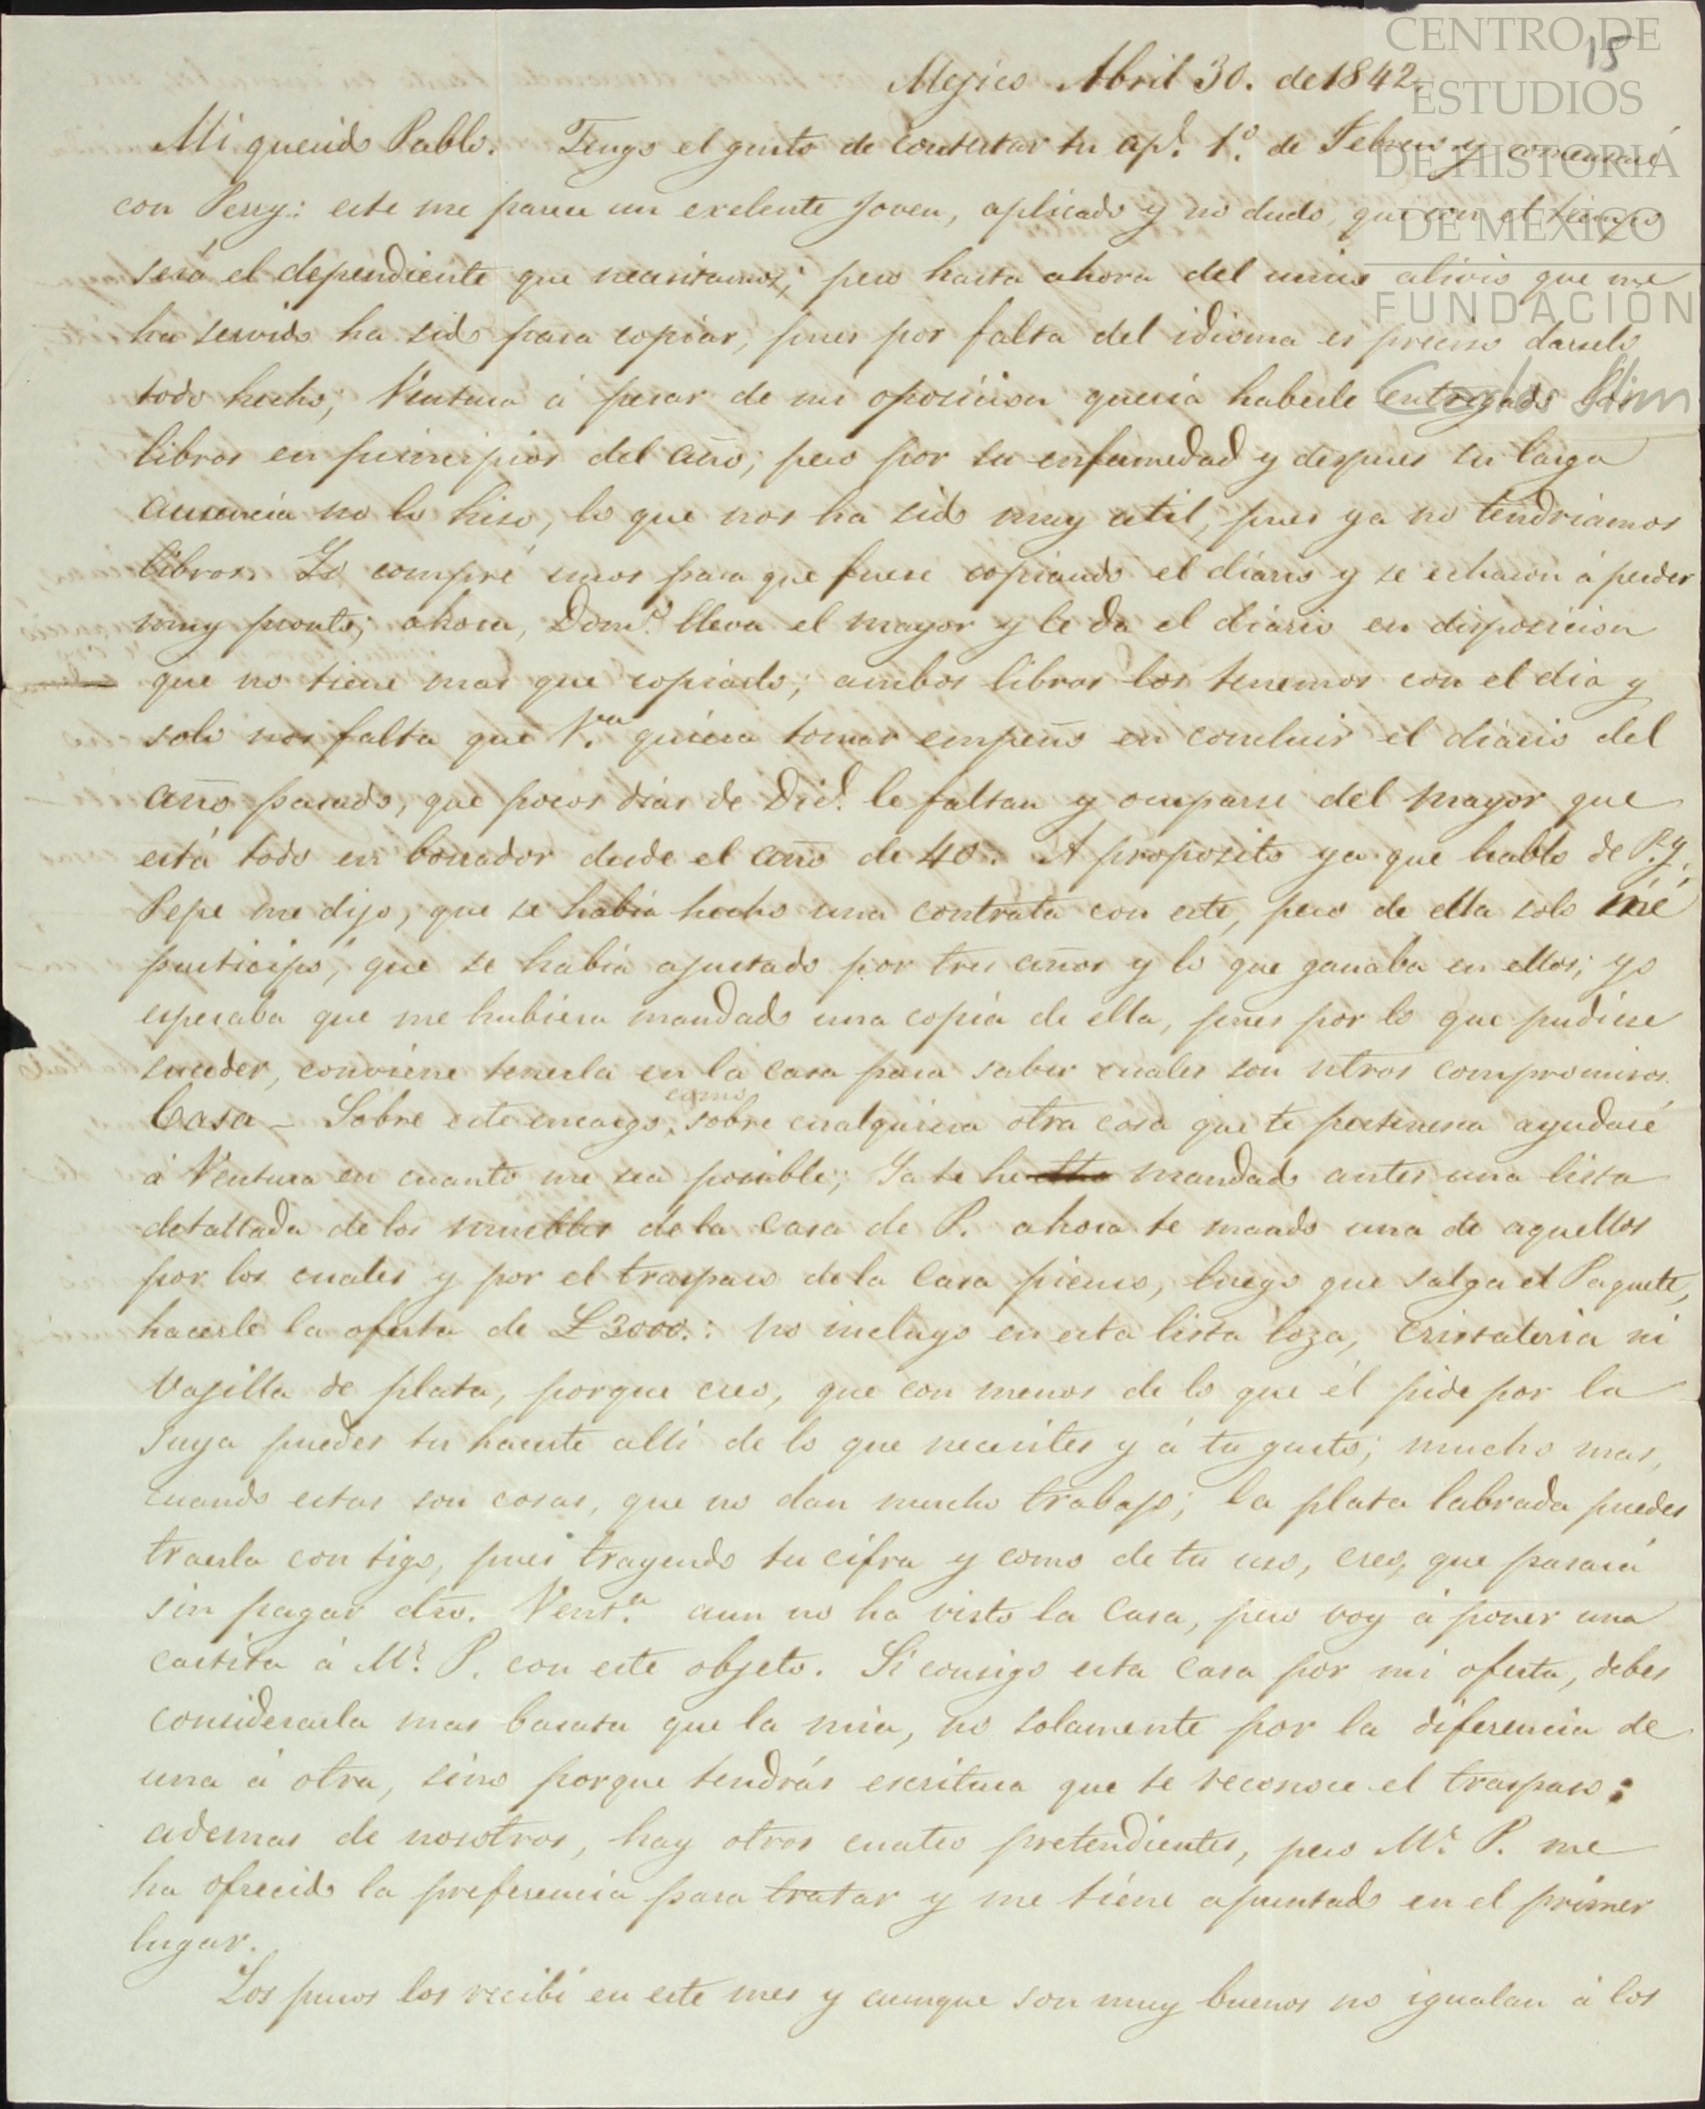 CENTRO DE
ESTUDIOS
DE HISTORIA
DE MÉXICO
FUNDACIÓN
Carlos Slim
15
Mejico Abril 30. de 1842.
Mi querido Pablo. Tengo el gusto de contestar tu ap.da 1.º de Febrero y comenzaré
con Perry: este me parece un exelente joven, aplicado y no dudo, que con el tiempo
será el dependiente que necesitamos; pero hasta ahora del unico alivio que me
ha servido ha sido para copiar, pues por falta del idioma es preciso darselo
todo hecho; Ventura á pesar de mi oposicion queria haberle entregado los
libros en principios del año; pero por su enfermedad y despues su larga
ausencia no lo hiso, lo que nos ha sido muy util, pues ya no tendriamos
libros. Yo compré unos para que fuese copiando el diario y se echaron á perder
muy pronto; ahora, Dom.º lleva el mayor y le da el diario en disposicion
que no tiene mas que copiarlo; ambos libros los tenemos con el dia y
solo nos falta que V.ra quiera tomar empeño en concluir el diario del
año pasado, que pocos dias de Dic.e le faltan y ocuparse del mayor que
está todo en borrador desde el año de 40. A proposito ya que hablo de P.y.
Pepe me dijo, que se habia hecho una contrata con este, pero de ella solo me
participó, que se habia ajustado por tres años y lo que ganaba en ellos; yo
esperaba que me hubiera mandado una copia de ella, pues por lo que pudiese
suceder, conviene tenerla en la casa para saber cuales son ntros compromisos.
Casa - Sobre este encargo, como sobre cualquiera otra cosa que te pertenesca ayudaré
á Ventura en cuanto me sea posible; Ya te he mandado antes una lista
detallada de los muebles de la casa de P. ahora te mando una de aquellos
por los cuales y por el traspaso de la Casa pienso, luego que salga el Paquete,
hacerle la oferta de £3000.: no incluyo en esta lista loza, cristaleria ni
vajilla de plata, porque creo, que con menos de lo que él pide por la
suya puedes tu hacerte alli de lo que necesites y á tu gusto; mucho mas,
cuando estas son cosas, que no dan mucho trabajo; la plata labrada puedes
traerla con tigo, pues trayendo tu cifra y como de tu uso, creo, que pasará
sin pagar dro. Vent.a aun no ha visto la Casa, pero voy á poner una
cartita á Mr. P. con este objeto. Si consigo esta casa por mi oferta, debes
considerarla mas barata que la mia, no solamente por la diferencia de
una á otra, sino porque tendrás escritura que te reconoce el traspaso:
ademas de nosotros, hay otros cuatro pretendientes, pero Mr. P. me
ha ofrecido la preferencia para tratar y me tiene apuntado en el primer
lugar.
Los puros los recibi en este mes y aunque son muy buenos no igualan á los